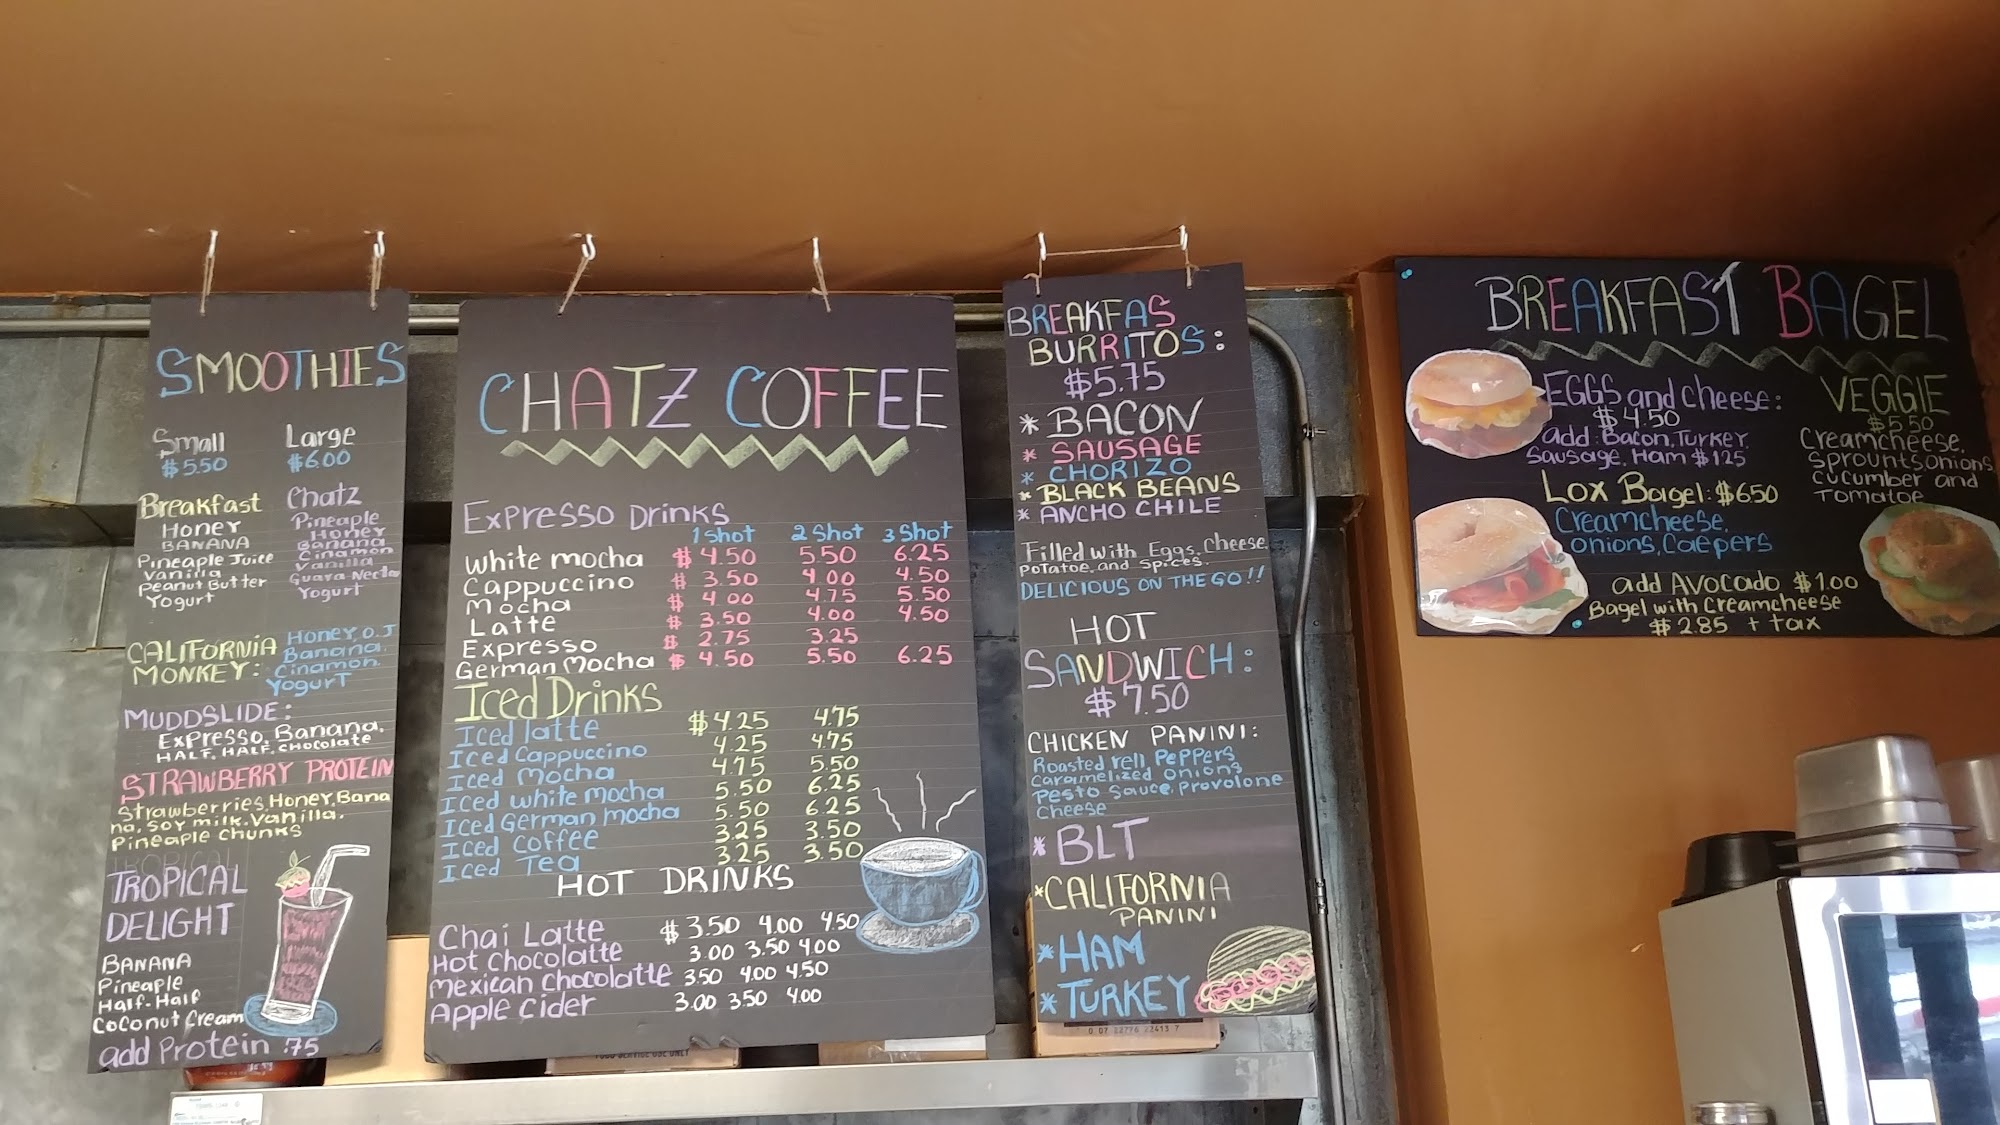 SMOOTHIES
Small Large
$5.50 $6.00
Breakfast
Honey
BANANA
Pineapple Juice
Vanilla
Peanut Butter
Yogurt
Chatz
Pineapple
Honey
Banana
Cinamon
Vanilla
Guava Necta
Yogurt
CALIFORNIA
MONKEY:
Honey, O.J
Banana,
Cinamon
Yogurt
MUDDSLIDE:
Expresso, Banana,
HALF, HALF, chocolate
STRAWBERRY PROTEIN
Strawberries, Honey, Bana
na, Soy milk, Vanilla,
Pineapple chunks
TROPICAL
DELIGHT
BANANA
Pineaple
Half-Half
Coconut Cream
add Protein .75
CHATZ COFFEE
Expresso Drinks
1 Shot 2 Shot 3 Shot
White mocha $ 4.50 5.50 6.25
Cappuccino $ 3.50 4.00 4.50
Mocha $ 4.00 4.75 5.50
Latte $ 3.50 4.00 4.50
Expresso $ 2.75 3.25
German Mocha $ 4.50 5.50 6.25
Iced Drinks
Iced latte $4.25 4.75
Iced Cappuccino 4.25 4.75
Iced Mocha 4.75 5.50
Iced White mocha 5.50 6.25
Iced German mocha 5.50 6.25
Iced Coffee 3.25 3.50
Iced Tea 3.25 3.50
HOT DRINKS
Chai Latte $3.50 4.00 4.50
Hot Chocolatte 3.00 3.50 4.00
Mexican Chocolatte 3.50 4.00 4.50
Apple Cider 3.00 3.50 4.00
BREAKFAS
BURRITOS:
$5.75
* BACON
* SAUSAGE
* CHORIZO
* BLACK BEANS
* ANCHO CHILE
Filled with Eggs, Cheese
Potatoe, and Spices.
DELICIOUS ON THE GO!!
HOT
SANDWICH:
$7.50
CHICKEN PANINI:
Roasted rell Peppers
Caramelized Onions
Pesto Sauce, provolone
Cheese
* BLT
* CALIFORNIA
PANINI
* HAM
* TURKEY
BREAKFAST BAGEL
EGGS and Cheese:
$4.50
add: Bacon, Turkey,
Sausage, Ham $1.25
LOX Bagel: $6.50
Creamcheese,
Onions, Caepers
add AVOCADO $1.00
Bagel with Creamcheese
$2.85 + tax
VEGGIE
$5.50
Creamcheese,
Sprounts, onions
Cucumber and
Tomatoe
0 07 22776 22413 7
FOOD SERVICE USE ONLY